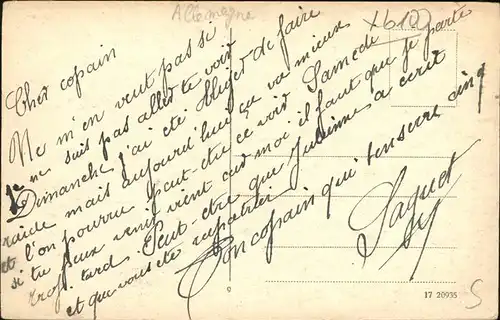 Allemagne
X6102
Cher copain
Ne m'en veut pas si
je ne suis pas aller te voir
Dimanche j'ai été obliger de faire
raide mais aujourd'hui ça va mieux
et l'on pourra peut-être ce voir Samedi
si tu peux venir car moi il faut que je parte
trop tard. Peut-être que Julienne a écrit
et que vous été rapatrier
Ton copain qui t'en serre cinq
Saquet
17 20935
S